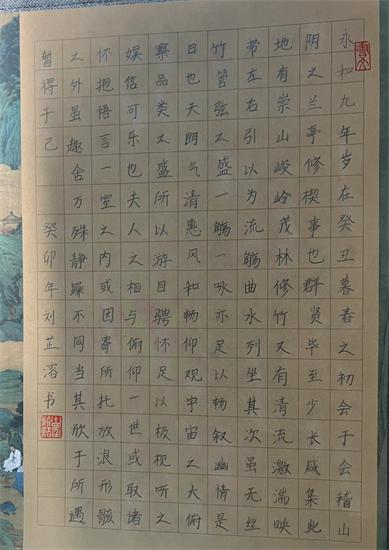 永和九年岁在癸丑暮春之初会于会稽山
阴之兰亭修禊事也群贤毕至少长咸集此
地有崇山峻岭茂林修竹又有清流激湍映
带左右引以为流觞曲水列坐其次虽无丝
竹管弦之盛一觞一咏亦足以畅叙幽情是
日也天朗气清惠风和畅仰观宇宙之大俯
察品类之盛所以游目骋怀足以极视听之
娱信可乐也夫人之相与俯仰一世或取诸
怀抱悟言一室之内或因寄所托放浪形骸
之外虽趣舍万殊静躁不同当其欣于所遇
暂得于己 癸卯年刘芷溶书